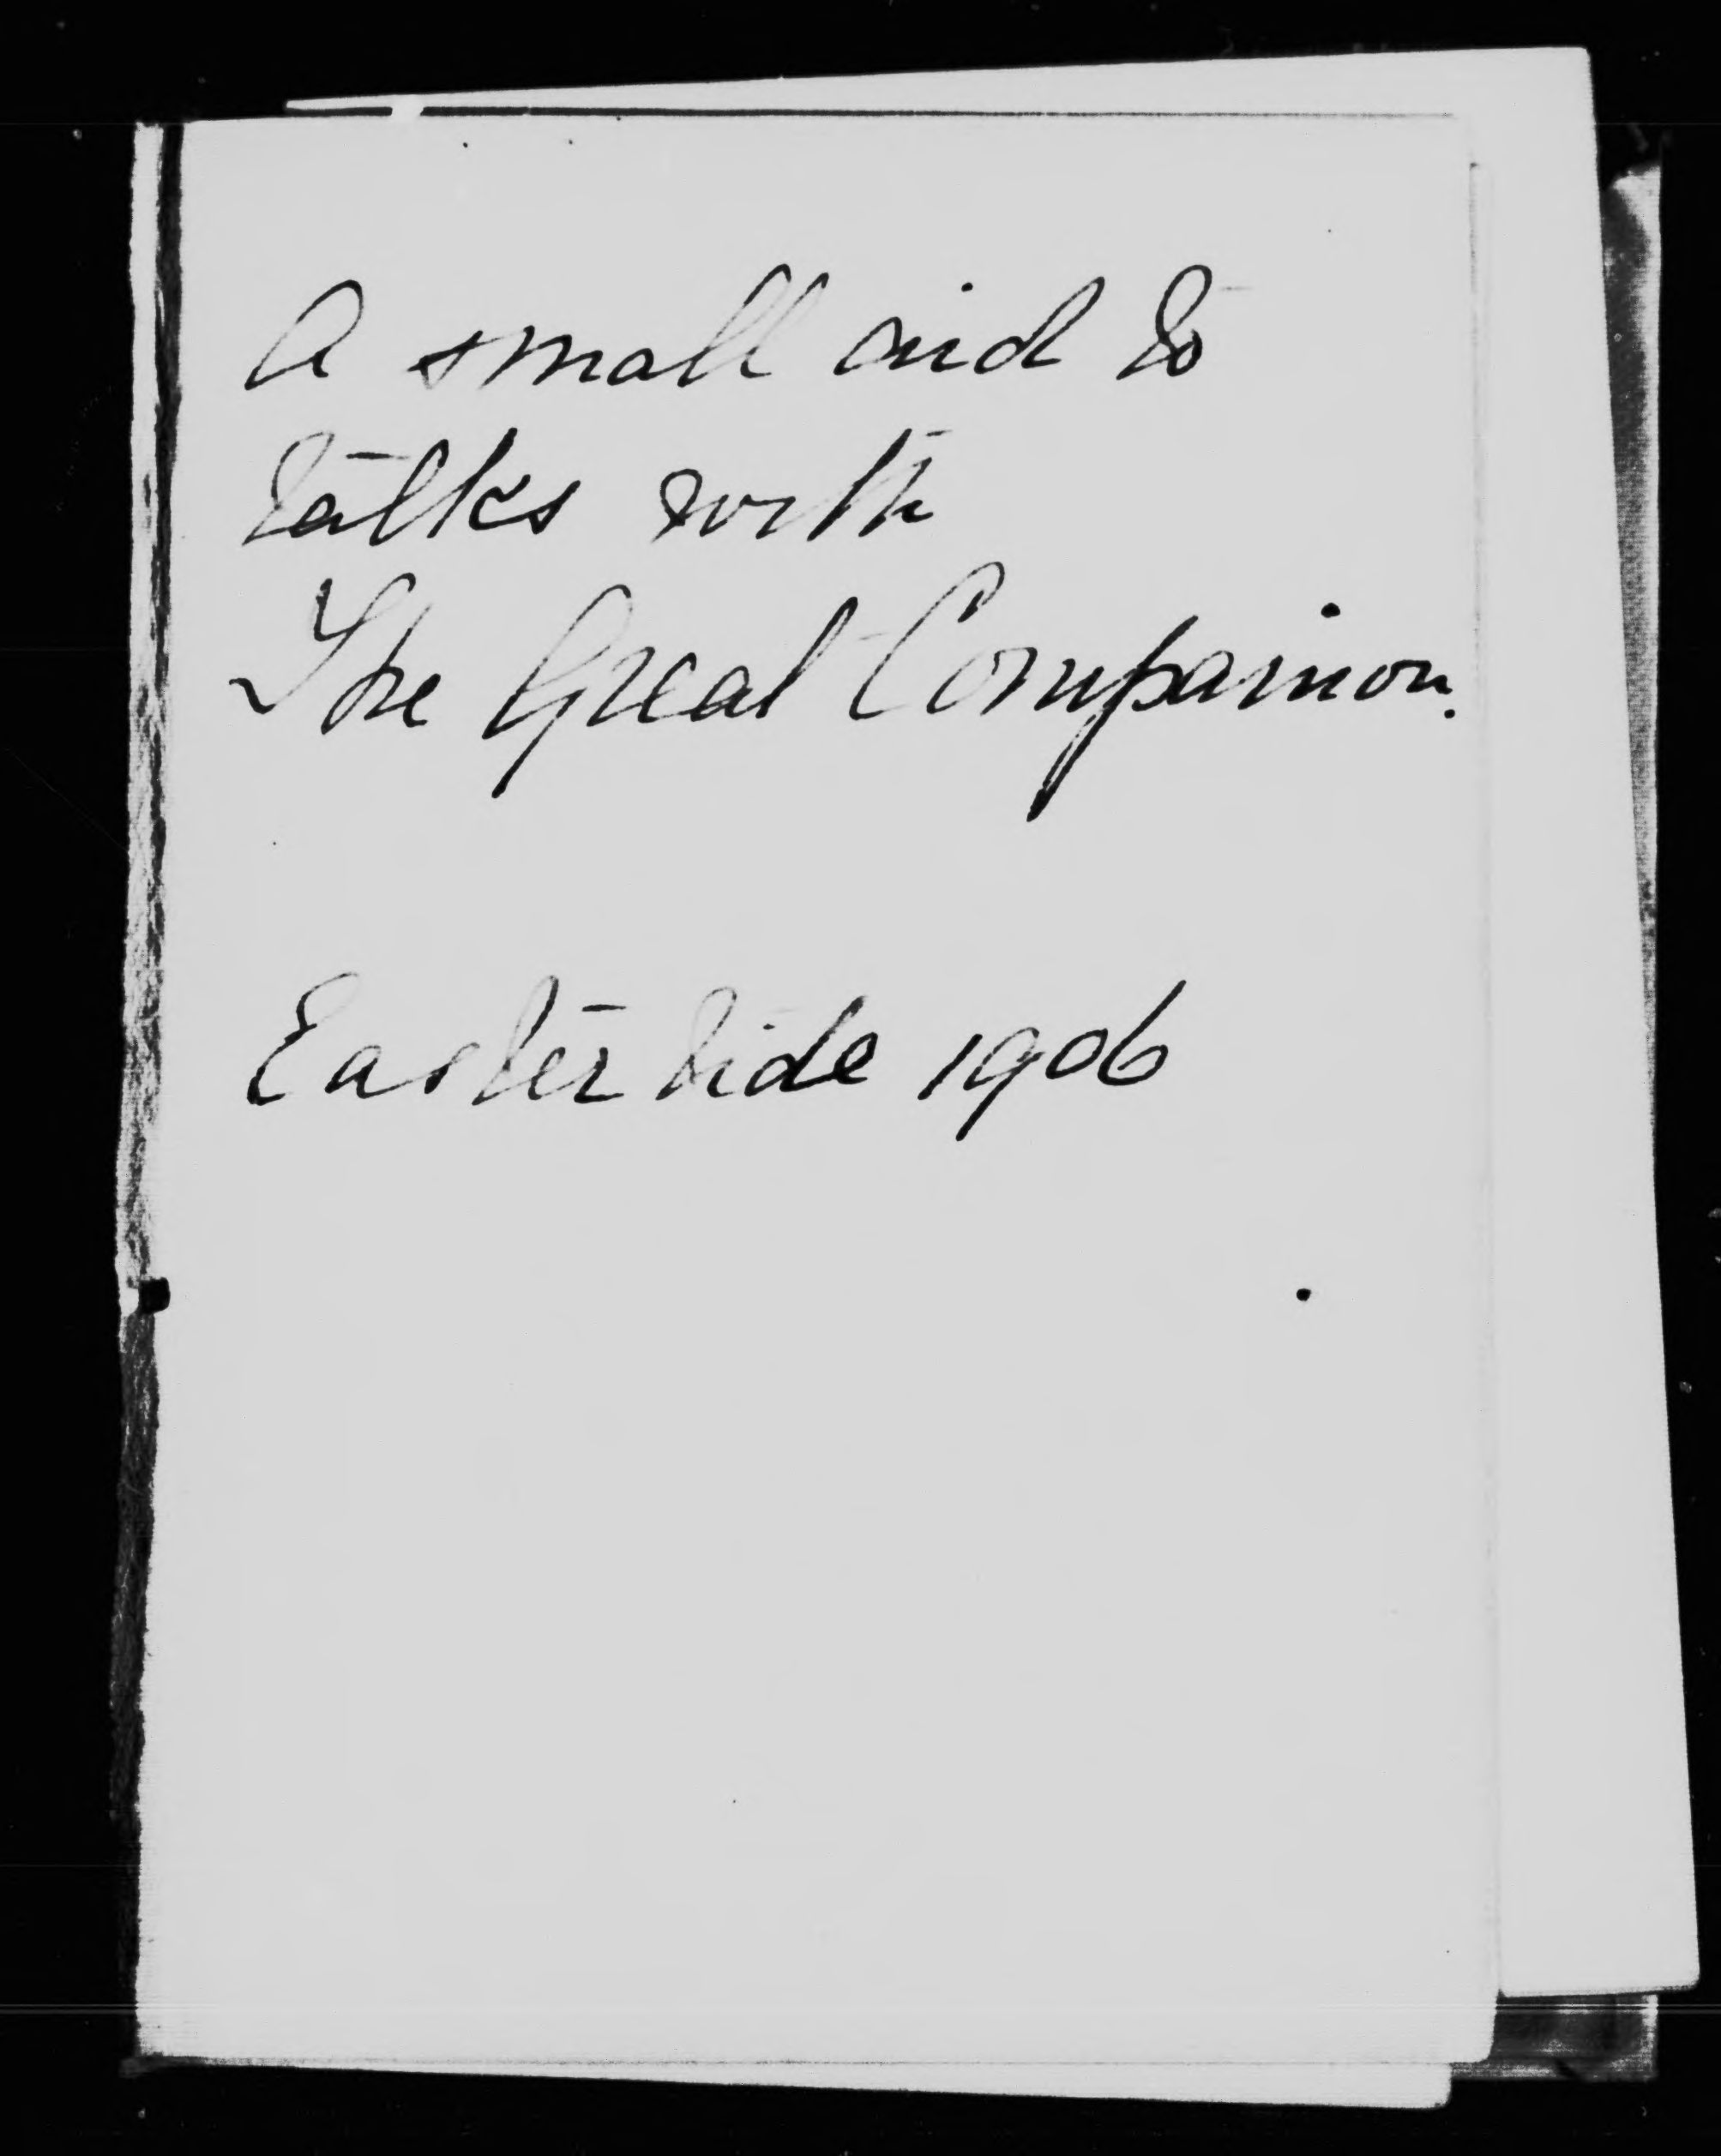 A small aid to
talks with
The Great Companion.
Easter tide 1906